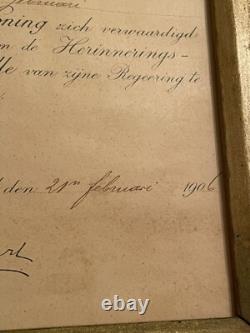 februari
oning zich verwaardigd
m de Herinnerings-
lle van zyne Regeering te
den 21n februari 1906